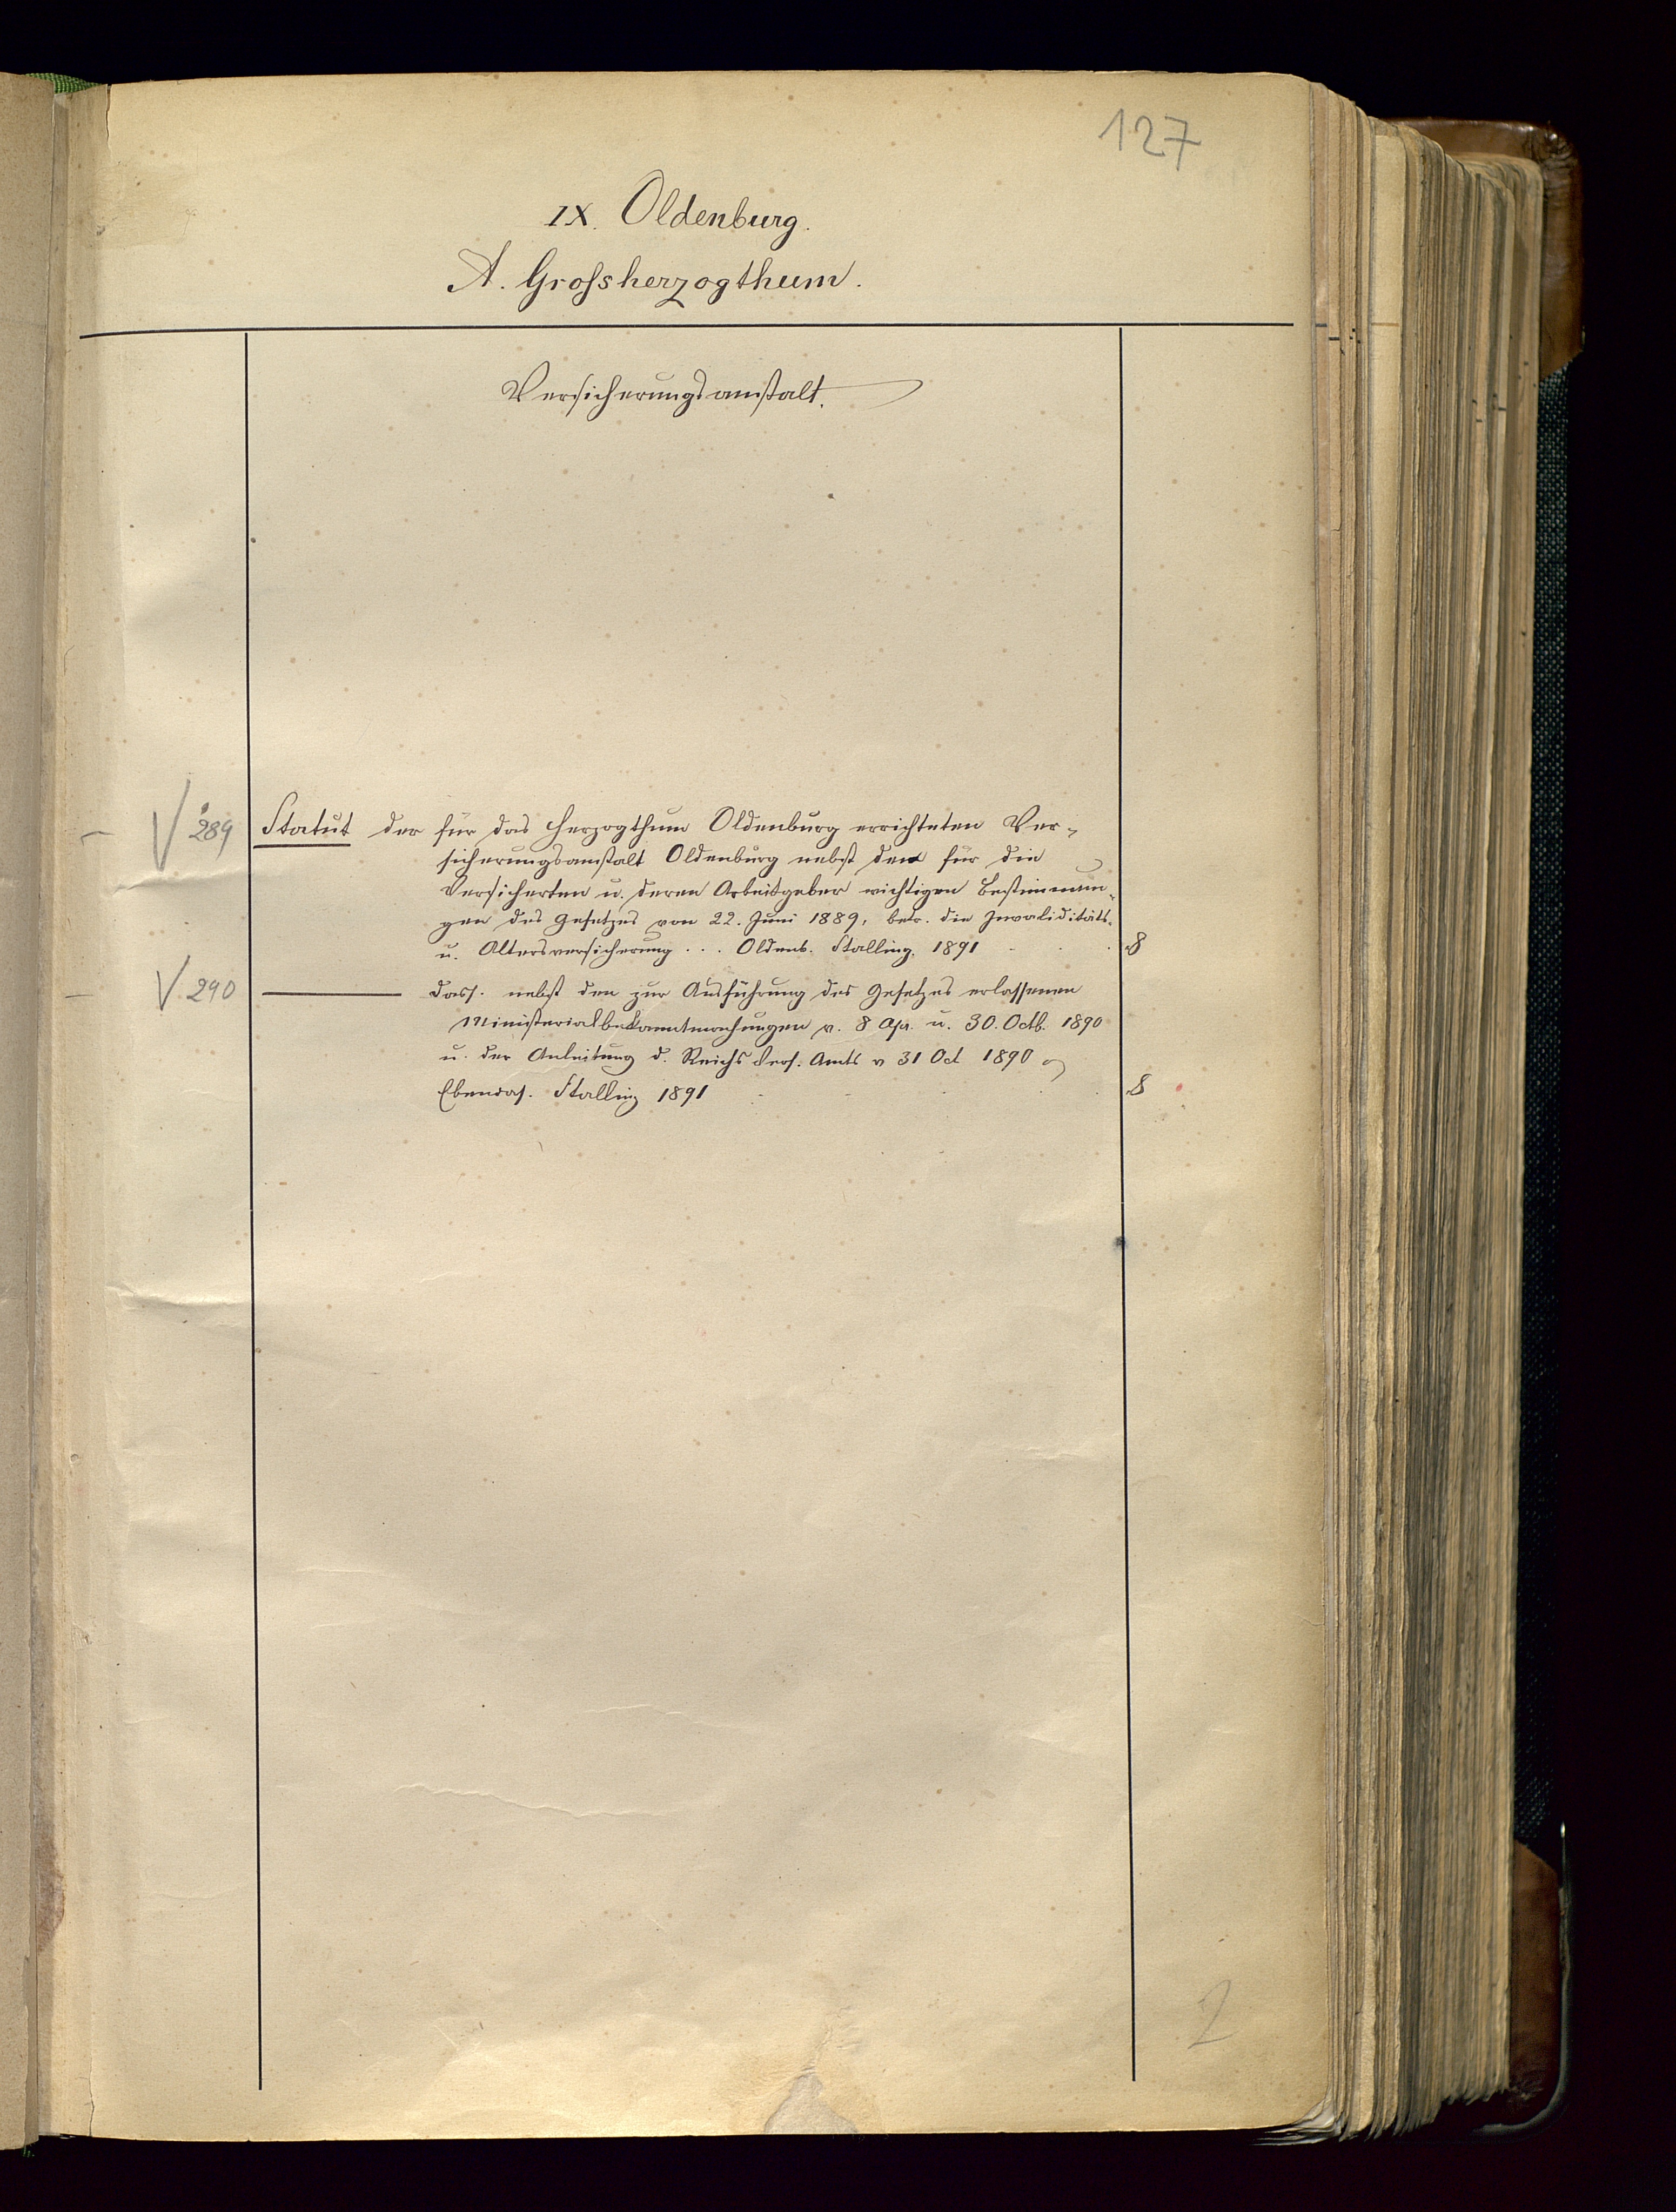 127
IX. Oldenburg.
A. Grossherzogthum.
Versicherungsanstalt.
V 289 Statut der für das Herzogthum Oldenburg errichteten Ver-
sicherungsanstalt Oldenburg nebst den für die
Versicherten u. deren Arbeitgeber wichtigen Bestimmun-
gen des Gesetzes von 22. Juni 1889, betr. die Invaliditäts-
u. Altersversicherung ... Oldenb. Stalling. 1891 . . . 8
V. 290 — Dass. nebst den zur Ausführung des Gesetzes erlassenen
Ministerialbekanntmachungen v. 8 Apr. u. 30. Octb. 1890
u. der Anleitung d. Reichs Vers. Amts v 31 Oct 1890
Ebendas. Stalling 1891 . . . 8
2